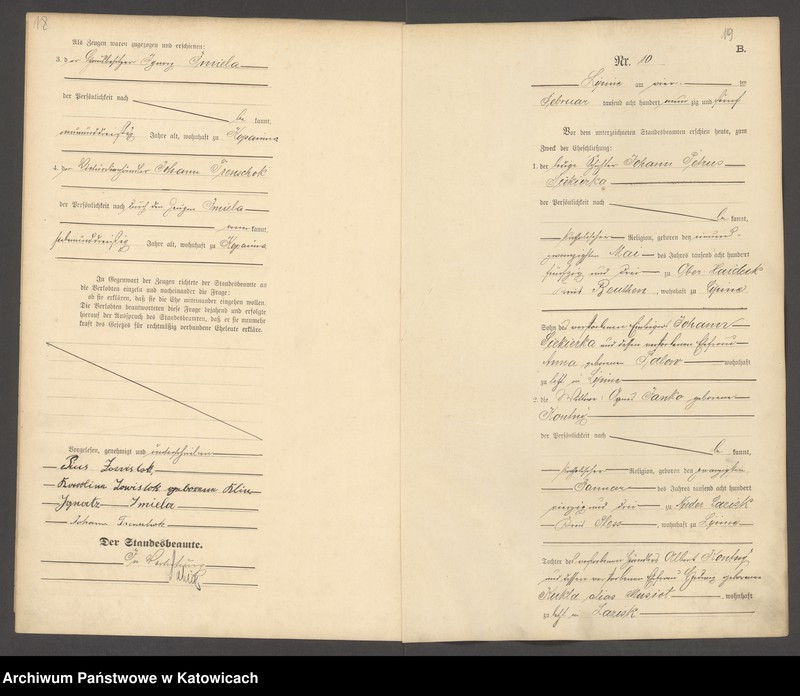 18
Als Zeugen waren zugezogen und erschienen:
3. der Grundbesitzer Ignatz Imiela
der Persönlichkeit nach
be kannt,
neununddreißig Jahre alt, wohnhaft zu Kopanina
4. der Johann Trenschok
der Persönlichkeit nach durch den Zeugen Imiela
kannt,
siebenunddreißig Jahre alt, wohnhaft zu Kopanina
In Gegenwart der Zeugen richtete der Standesbeamte an
die Verlobten einzeln und nacheinander die Frage:
ob sie erklären, daß sie die Ehe miteinander eingehen wollen.
Die Verlobten beantworteten diese Frage bejahend und erfolgte
hierauf der Ausspruch des Standesbeamten, daß er sie nunmehr
kraft des Gesetzes für rechtmäßig verbundene Eheleute erkläre.
Vorgelesen, genehmigt und unterschrieben
Pius Zowislok
Karolina Zowislok geborene Klin
Ignatz Imiela
Johann Trenschok
Der Standesbeamte.
In Vertretung
19
B.
Nr. 10
Lipine am vier ten
Februar tausend acht hundert neun zig und fünf
Vor dem unterzeichneten Standesbeamten erschien heute, zum
Zweck der Eheschließung:
1. der ledige Johann Petrus
Siekierka
der Persönlichkeit nach
be kannt,
katholischer Religion, geboren den neunund-
zwanzigsten Mai des Jahres tausend acht hundert
fünfzig und drei zu Ober Haiduk
Kreis Beuthen, wohnhaft zu Lipine
Sohn des verstorbenen Johann
Siekierka und dessen verstorbenen Ehefrau
Anna geborenen wohnhaft
zu letzt in Lipine
2. die Wittwe Agnes Janko geborene
Kontny
der Persönlichkeit nach
be kannt,
katholischer Religion, geboren den zwanzigsten
Januar des Jahres tausend acht hundert
vierzig und drei zu Nieder Lazisk
Kreis Pless, wohnhaft zu Lipine
Tochter des verstorbenen Händlers Albert Kontny
und dessen verstorbenen Ehefrau Hedwig geborenen
Kukla alias Musiol wohnhaft
zu letzt in Lazisk
Archiwum Państwowe w Katowicach